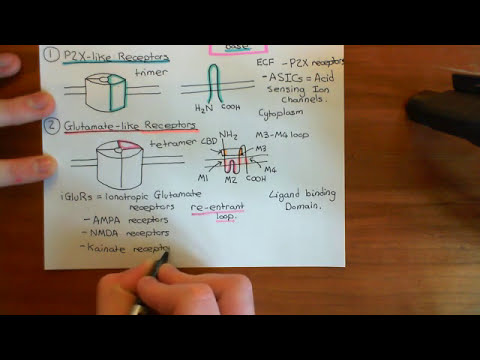 case
1 P2X-like Receptors
trimer
ECF - P2X receptors
- ASICs = Acid
sensing Ion
channels.
H₂N COOH
Cytoplasm
2 Glutamate-like Receptors
tetramer
CBD
NH₂
M3-M4 loop
M3
M1 M2 M4
COOH
iGluRs = Ionotropic Glutamate
receptors
- AMPA receptors
- NMDA receptors
- Kainate receptor
re-entrant
loop.
Ligand binding
Domain.